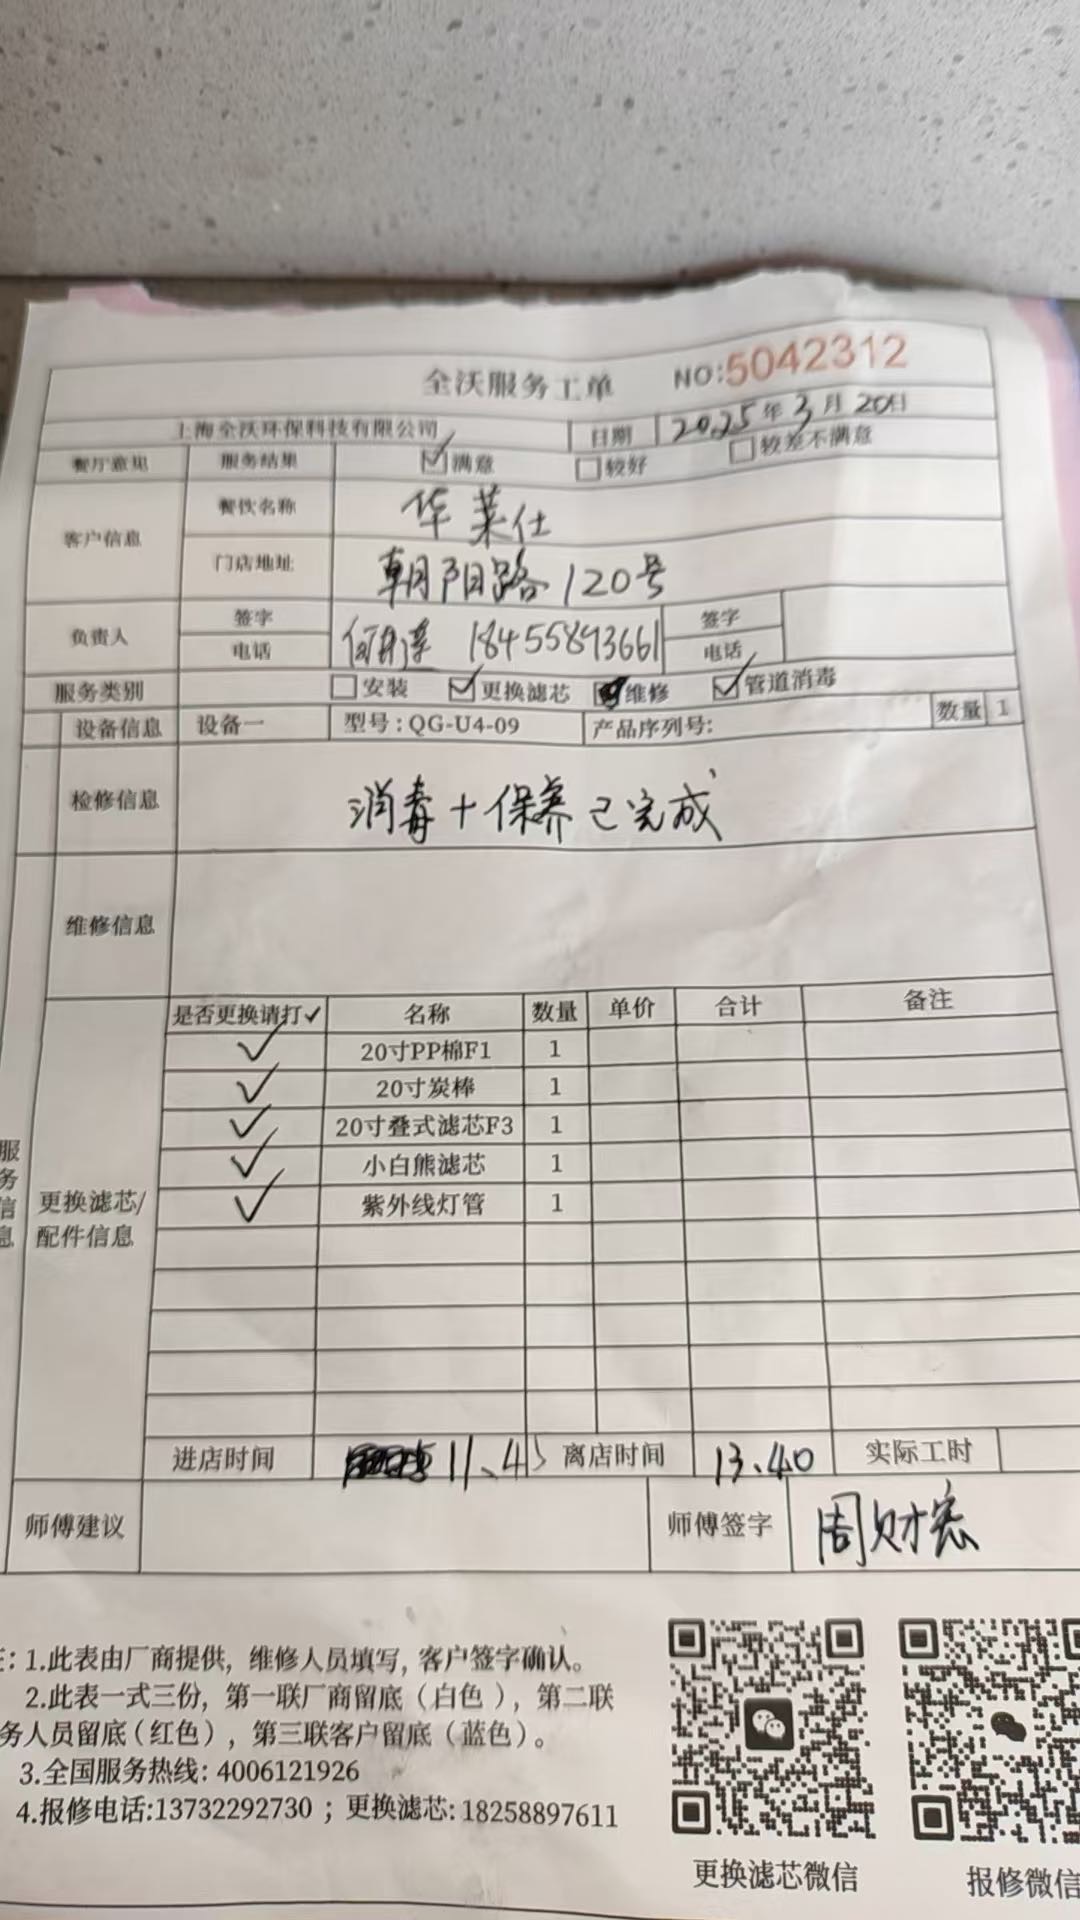 全沃服务工单 NO:5042312
上海全沃环保科技有限公司 日期 2025年3月20日
餐厅意见 服务结果 满意 较好 较差不满意
客户信息 餐饮名称 华莱仕
门店地址 朝阳路120号
负责人 签字 签字
电话 18455893661 电话
服务类别 安装 更换滤芯 维修 管道消毒
设备信息 设备一 型号:QG-U4-09 产品序列号: 数量 1
检修信息 消毒+保养已完成
维修信息
服务信息
更换滤芯/配件信息
是否更换请打✓ 名称 数量 单价 合计 备注
✓ 20寸PP棉F1 1
✓ 20寸炭棒 1
✓ 20寸叠式滤芯F3 1
✓ 小白熊滤芯 1
✓ 紫外线灯管 1
进店时间 11、45 离店时间 13、40 实际工时
师傅建议 师傅签字 周财宏
注:1.此表由厂商提供,维修人员填写,客户签字确认。
2.此表一式三份,第一联厂商留底(白色),第二联
务人员留底(红色),第三联客户留底(蓝色)。
3.全国服务热线:4006121926
4.报修电话:13732292730;更换滤芯:18258897611
更换滤芯微信 报修微信